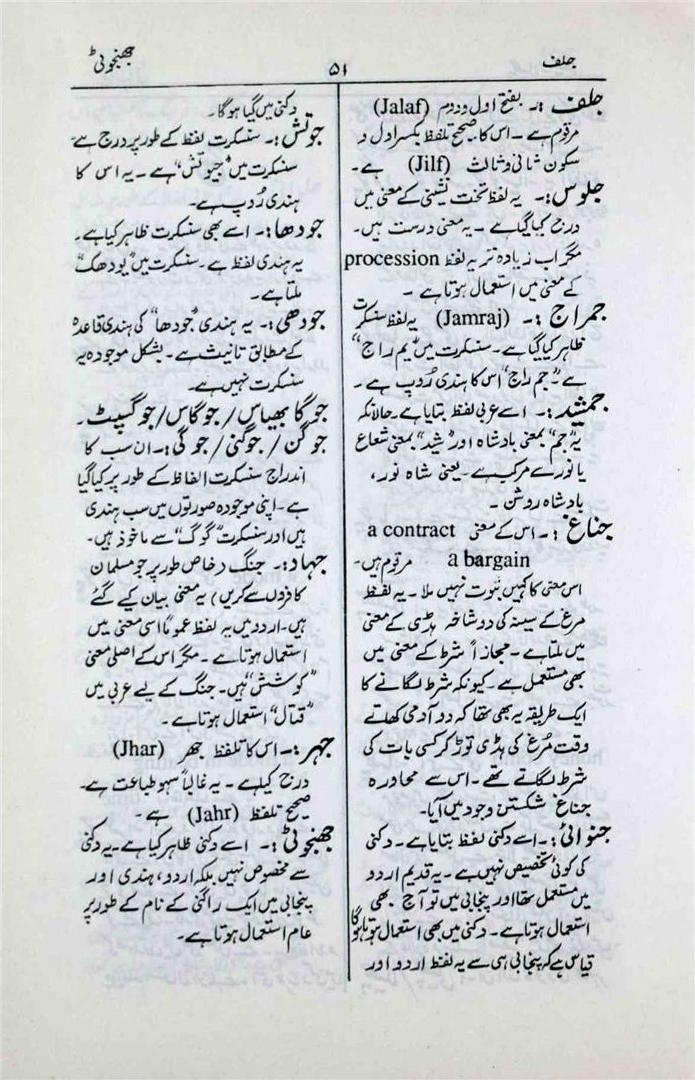 جلف
۵۱
جھنجوٹی
جلف :۔ بفتح اول و دوم (Jalaf)
مرقوم ہے ۔ اس کا صحیح تلفظ بکسر اول و
سکون ثانی و ثالث (Jilf) ہے ۔
جلوس :۔ یہ لفظ تخت نشینی کے معنی میں
درج کیا گیا ہے ۔ یہ معنی درست ہیں ۔
مگر اب زیادہ تر یہ لفظ procession
کے معنی میں استعمال ہوتا ہے ۔
جمراج :۔ (Jamraj) یہ لفظ سنسکرت
ظاہر کیا گیا ہے ۔ سنسکرت میں "یم راج"
ہے "جم راج" اس کا ہندی رُوپ ہے ۔
جمشید :۔ اسے عربی لفظ بتایا ہے ۔ حالانکہ
یہ "جم" بمعنی بادشاہ اور "شید" بمعنی شعاع
یا نور سے مرکب ہے ۔ یعنی شاہ نور،
بادشاہ روشن ۔
جناغ :۔ اس کے معنی a contract
a bargain مرقوم ہیں ۔
اس معنی کا کہیں ثبوت نہیں ملا ۔ یہ لفظ
مرغ کے سینہ کی دو شاخہ ہڈی کے معنی
میں ملتا ہے ۔ مجازاً شرط کے معنی میں
بھی مستعمل ہے ۔ کیونکہ شرط لگانے کا
ایک طریقہ یہ بھی تھا کہ دو آدمی کھاتے
وقت مُرغ کی ہڈی توڑ کر کسی بات کی
شرط لگاتے تھے ۔ اس سے محاورہ
جناغ شکستن وجود میں آیا۔
جنوائی :۔ اسے دکنی لفظ بتایا ہے ۔ دکنی
کی کوئی تخصیص نہیں ہے ۔ یہ قدیم اردو
میں مستعمل تھا اور پنجابی میں تو آج بھی
استعمال ہوتا ہے ۔ دکنی میں بھی استعمال ہوتا ہوگا
قیاس ہے کہ پنجابی ہی سے یہ لفظ اردو اور
دکنی میں گیا ہوگا ۔
جوتش :۔ سنسکرت لفظ کے طور پر درج ہے ۔
سنسکرت میں "جیوتش" ہے ۔ یہ اس کا
ہندی رُوپ ہے ۔
جودھا :۔ اسے بھی سنسکرت ظاہر کیا ہے ۔
یہ ہندی لفظ ہے ۔ سنسکرت میں "یودھک"
ملتا ہے ۔
جودھی :۔ یہ ہندی "جودھا" کی ہندی قاعدہ
کے مطابق تانیث ہے ۔ بشکل موجودہ یہ
سنسکرت نہیں ہے ۔
جوگا بھیاس / جوگاس / جوگسپٹ ۔
جوگن / جوگنی / جوگی :۔ ان سب کا
اندراج سنسکرت الفاظ کے طور پر کیا گیا
ہے ۔ اپنی موجودہ صورتوں میں سب ہندی
ہیں اور سنسکرت "گوگ" سے ماخوذ ہیں ۔
جہاد :۔ جنگ (خاص طور پر جو مسلمان
کافروں سے کریں) یہ معنی بیان کیے گئے
ہیں ۔ اردو میں یہ لفظ عموماً اسی معنی میں
استعمال ہوتا ہے ۔ مگر اس کے اصلی معنی
"کوشش" ہیں ۔ جنگ کے لیے عربی میں
"قتال" استعمال ہوتا ہے ۔
جہر :۔ اس کا تلفظ جھر (Jhar)
درج کیا ہے ۔ یہ غالباً سہو طباعت ہے ۔
صحیح تلفظ (Jahr) ہے ۔
جھنجوٹی :۔ اسے دکنی ظاہر کیا ہے ۔ یہ دکنی
سے مخصوص نہیں بلکہ اردو، ہندی اور
پنجابی میں ایک راگنی کے نام کے طور پر
عام استعمال ہوتا ہے ۔